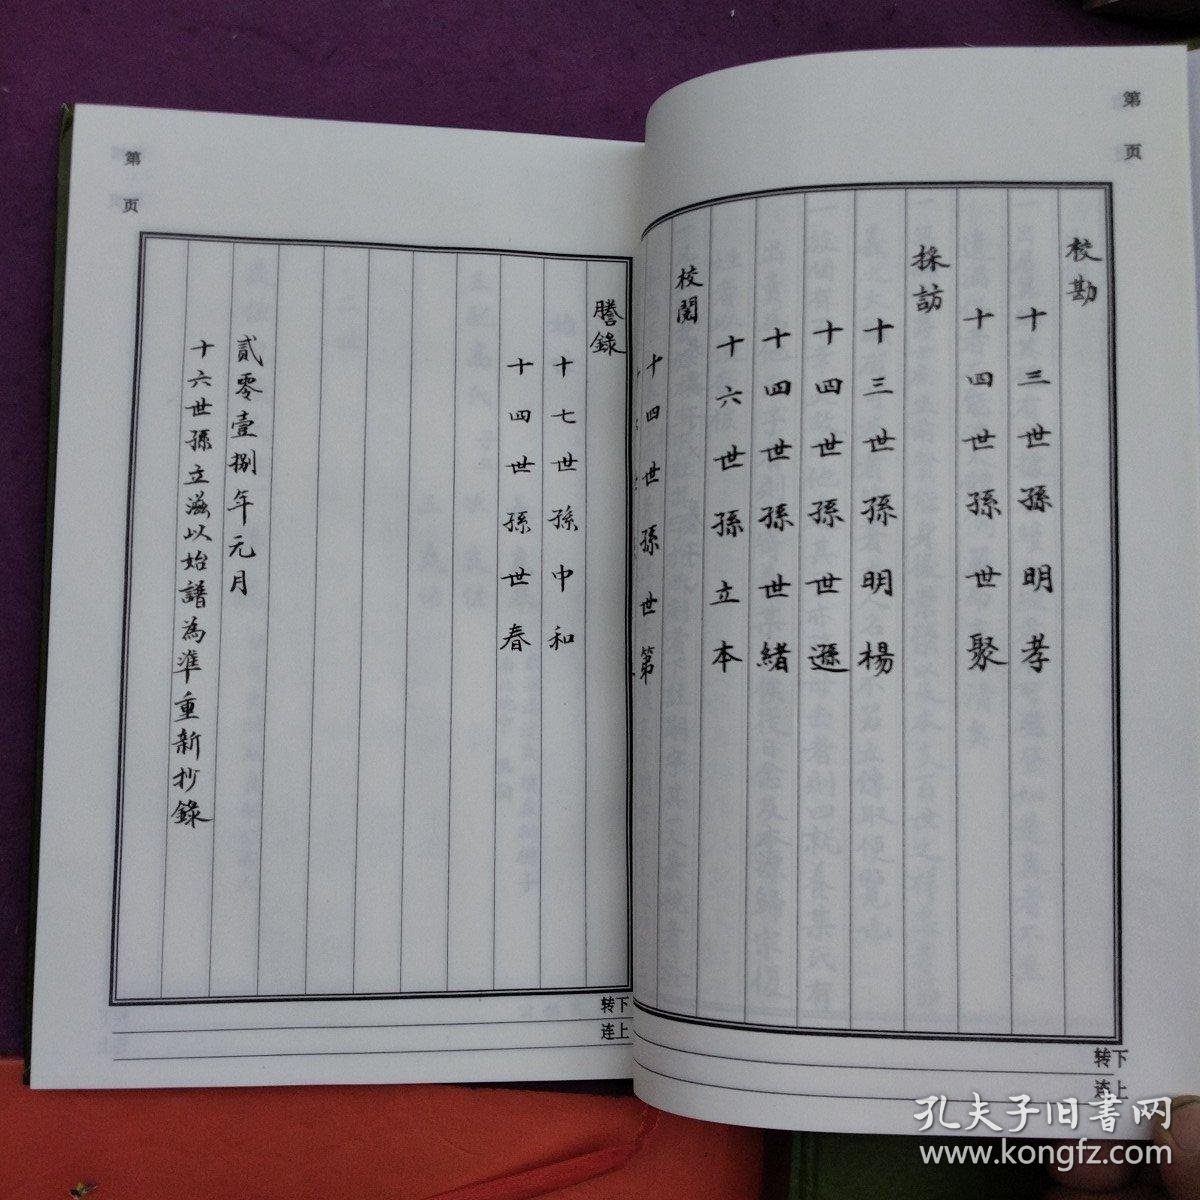 第 页
校勘
十三世孫明孝
十四世孫世聚
採訪
十三世孫明楊
十四世孫世遜
十四世孫世緒
十六世孫立本
校閱
十四世孫世第
转下
连上
第 页
謄錄
十七世孫中和
十四世孫世春
貳零壹捌年元月
十六世孫立滋以始譜為準重新抄錄
转下
连上
孔夫子旧書网
www.kongfz.com